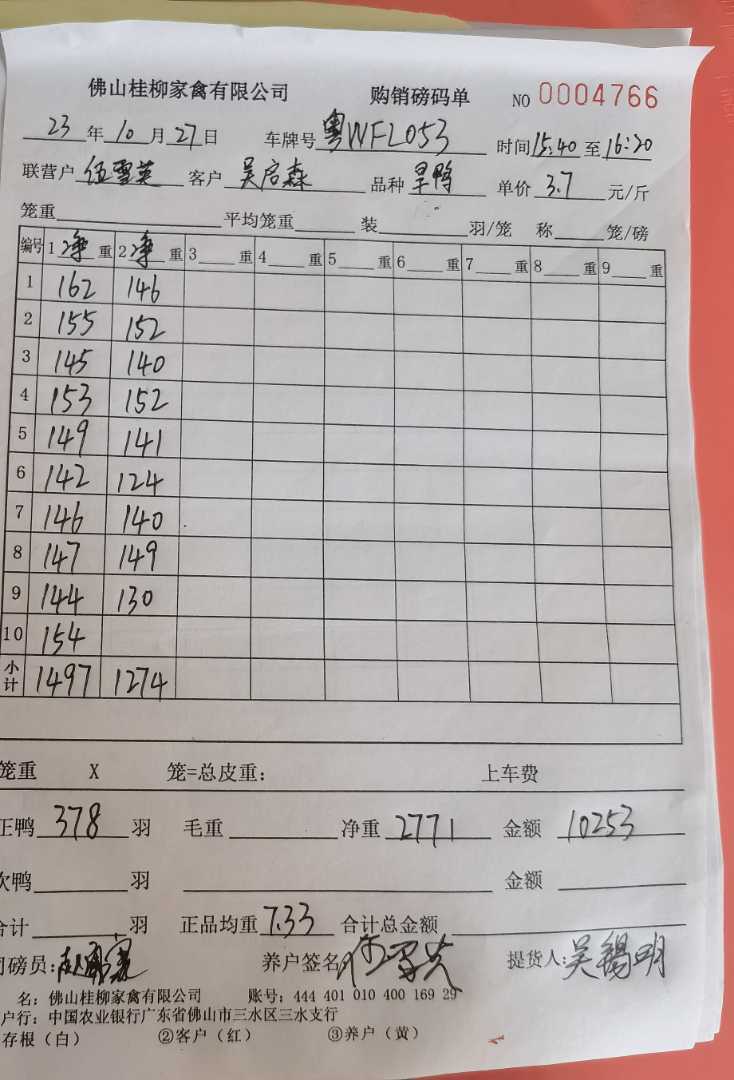 佛山桂柳家禽有限公司 购销磅码单 NO 0004766
23年10月27日 车牌号粤WFL053 时间15:40至16:20
联营户伍雪英 客户吴启森 品种旱鸭 单价3.7元/斤
笼重 平均笼重 装 羽/笼 称 笼/磅
编号 1净重 2净重 3重 4重 5重 6重 7重 8重 9重
1 162 146
2 155 152
3 145 140
4 153 152
5 149 141
6 142 124
7 146 140
8 147 149
9 144 130
10 154
小计 1497 1274
笼重 X 笼=总皮重: 上车费
正鸭378羽 毛重 净重2771 金额10253
次鸭 羽 金额
合计 羽 正品均重7.33 合计总金额
司磅员: 养户签名 伍雪英 提货人:吴锡明
名: 佛山桂柳家禽有限公司 账号: 444 401 010 400 169 29
户行: 中国农业银行广东省佛山市三水区三水支行
存根(白) ②客户(红) ③养户(黄)